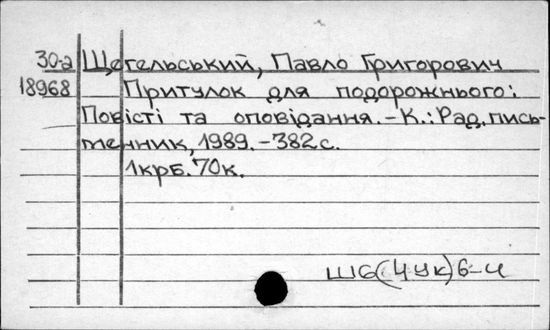 30-а Щегельський, Павло Григорович
18968 Притулок для подорожнього:
Повісті та оповідання.-К.: Рад.пись-
менник, 1989.-382с.
1крб.70к.
Ш6(4Ук)6-4